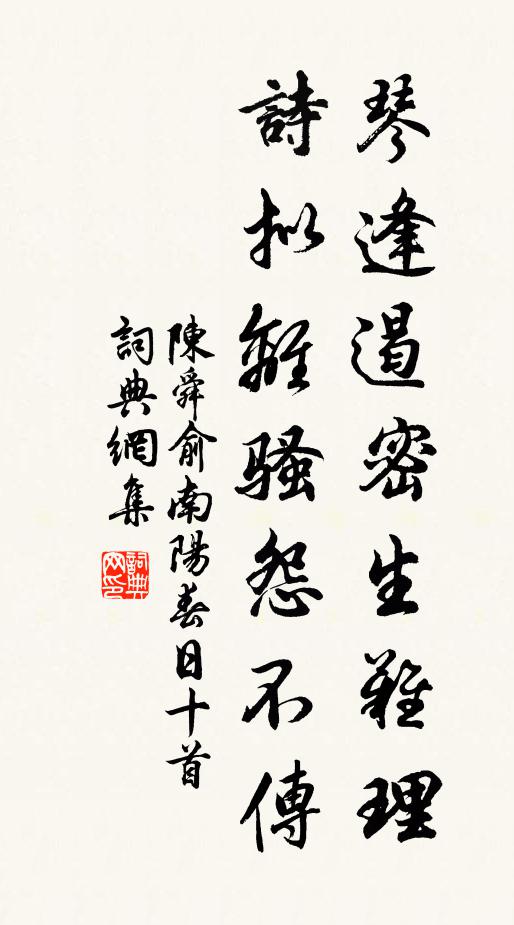 琴逢遏密生難理
詩拟離騷怨不傳
陳舜俞南陽春日十首
詞典網集
詞典
网印